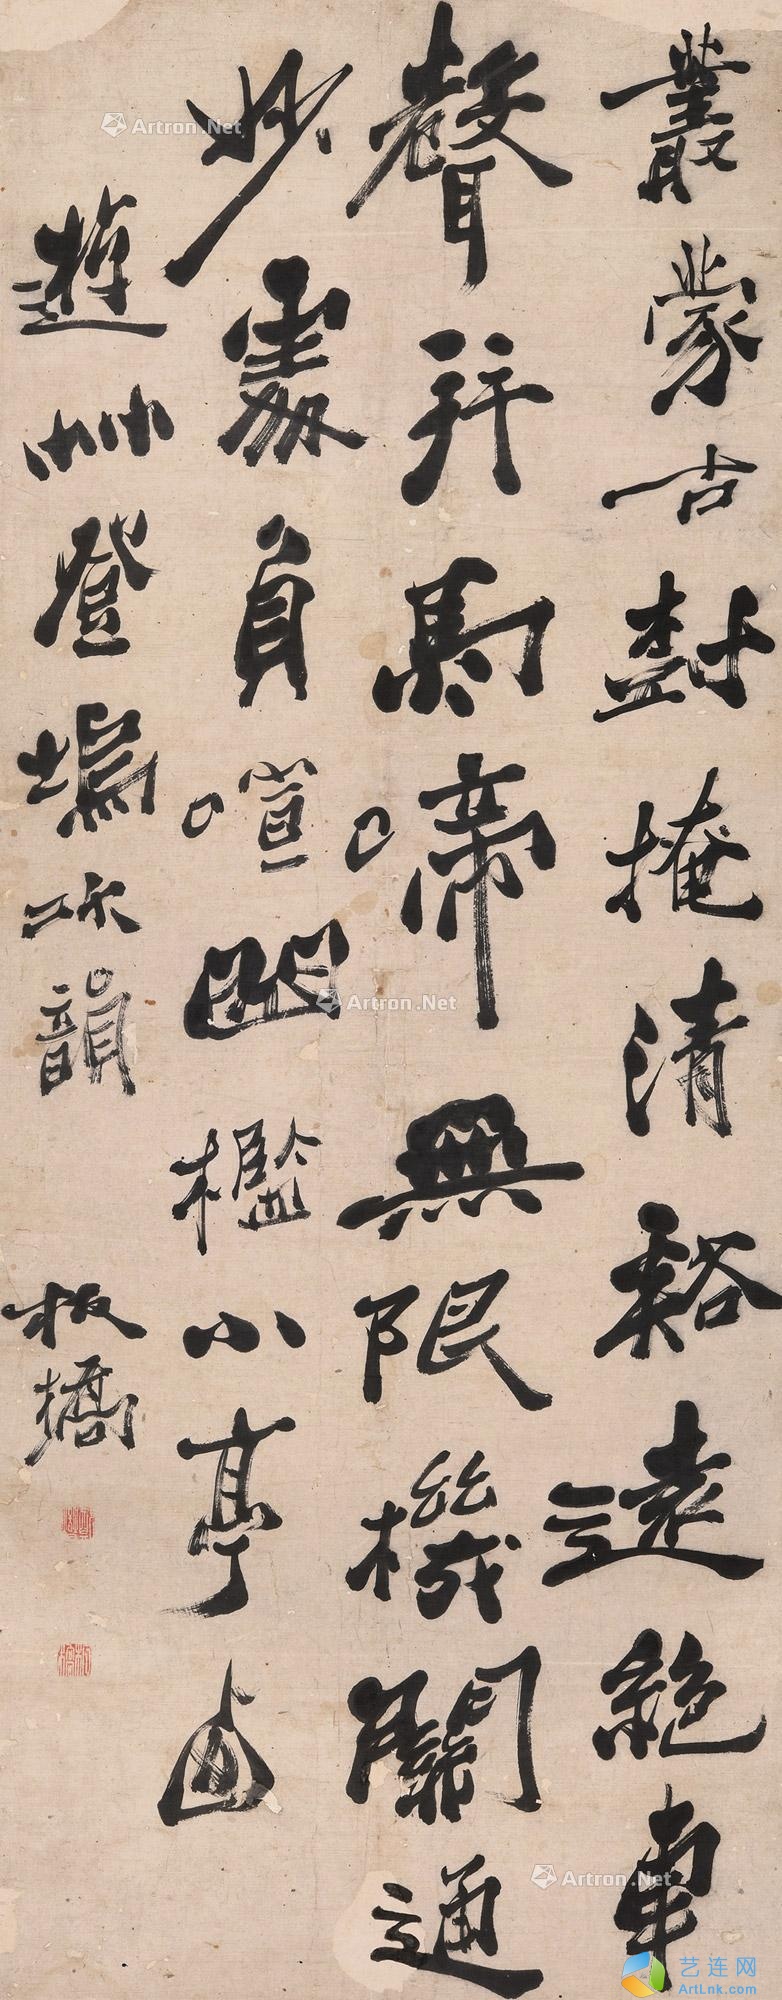 叢蒙古樹掩清谿遠絕車
聲并馬啼無限機關通
妙處負喧幽檻小亭西
遊艸登塢次韻 板橋
Artron.Net
Artron.Net
Artron.Net
艺连网
ArtLnk.com